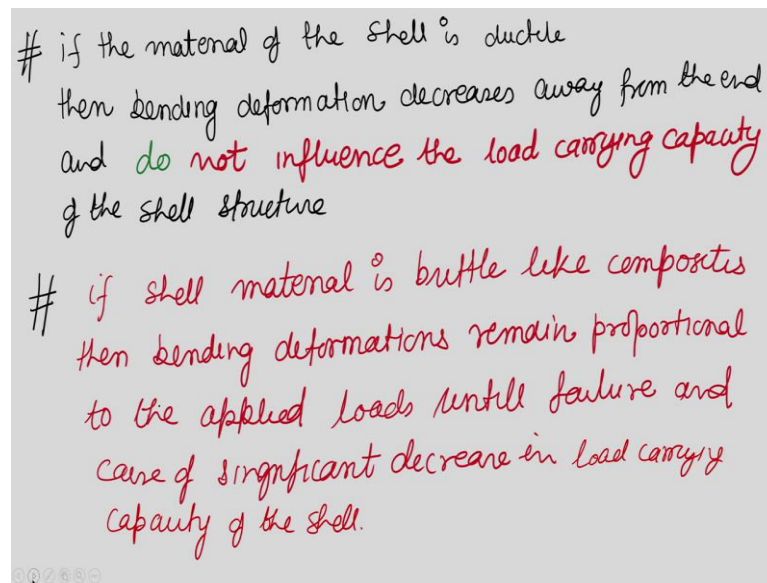 # if the material of the shell is ductile
then bending deformation decreases away from the end
and do not influence the load carrying capacity
of the shell structure
# if shell material is brittle like composites
then bending deformations remain proportional
to the applied loads untill failure and
cause of singnficant decrease in load carrying
capacity of the shell.